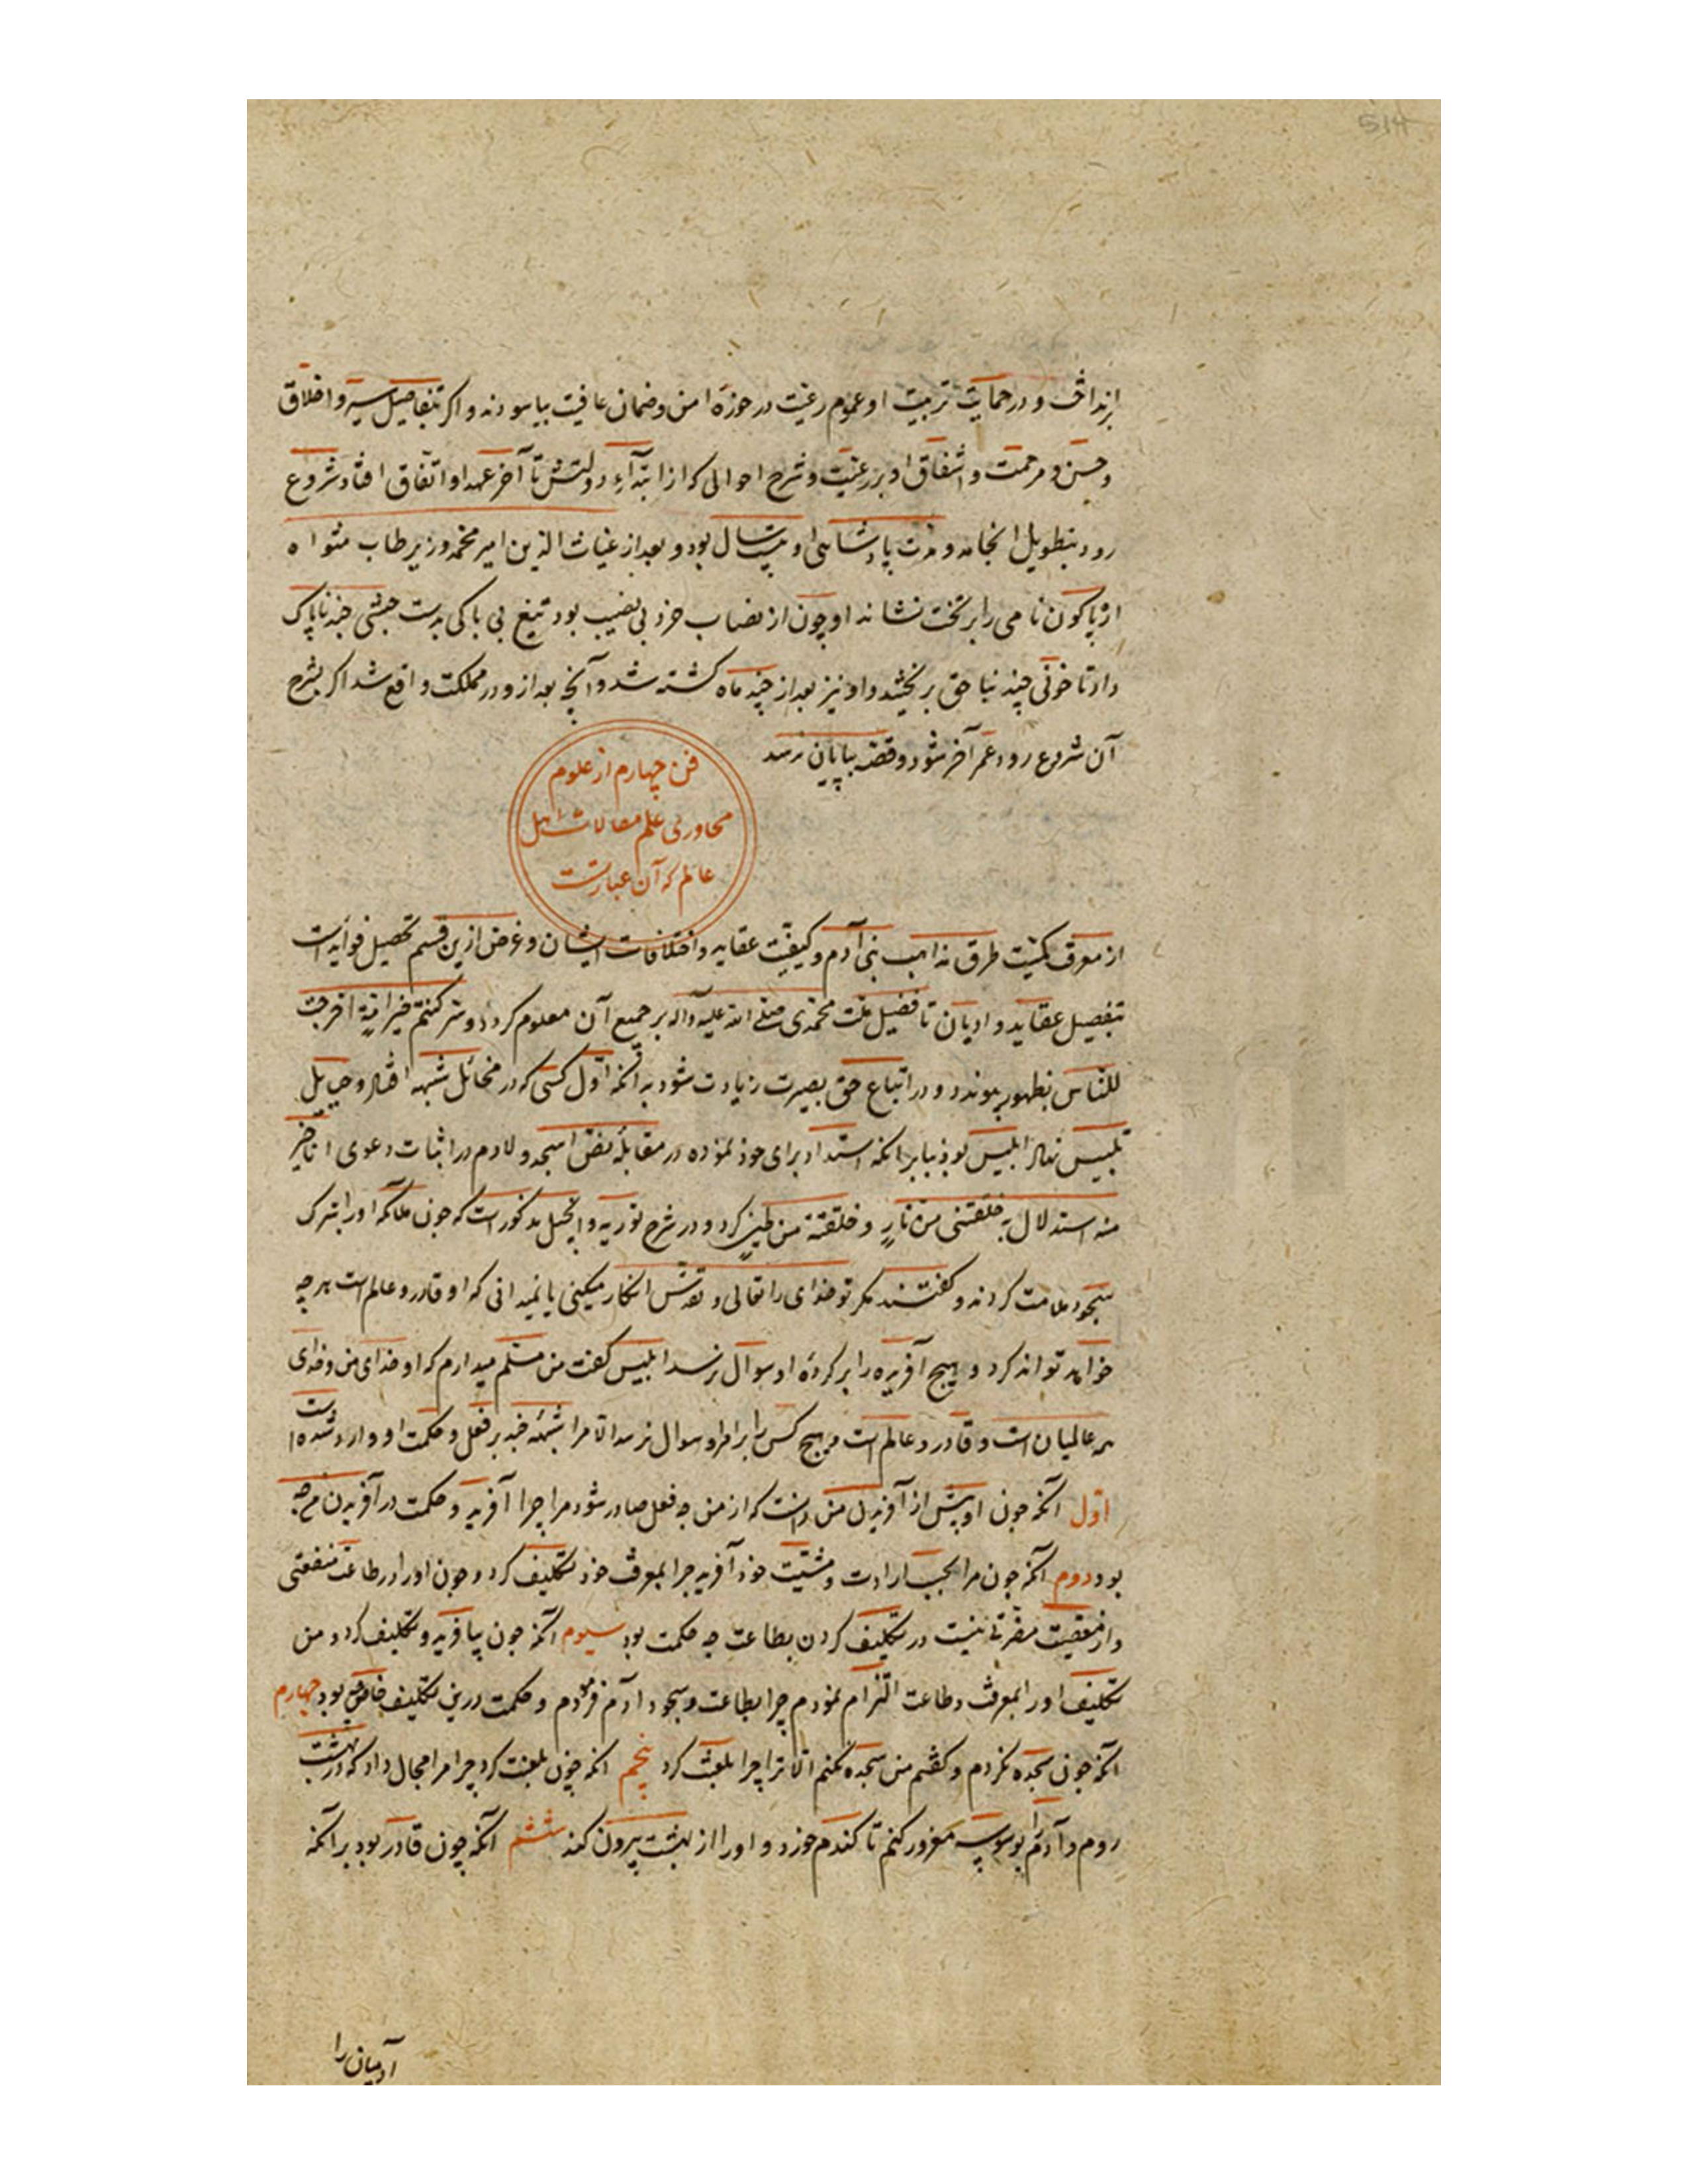 514
برنداشت و در حمایت تربیت او عموم رعیت در حوزه امن و ضمان عافیت بیاسودند و اگر بتفاصیل سیر و اخلاق
و حسن و مرحمت و اشفاق او بر رعیت و شرح احوالی که از ابتداء دولتش تا آخر عهد او اتفاق افتاد شروع
رود بتطویل انجامد و مدت پادشاهی او بیست سال بود و بعد از غیاث الدین امیر محمد وزیر طاب مثواه
ارپاکون نامی را بر تخت نشاند او چون از نصاب خرد بی نصیب بود تیغ بی باکی بدست جبشی چند ناپاک
داد تا خونی چند بنا حق بریختند و او نیز بعد از چند ماه کشته شد و آنچه بعد ازو در مملکت واقع شد اکر بشرح
آن شروع رود عمر آخر شود و قصه بپایان نرسد
فن چهارم از علوم
محاوری علم مقالات اهل
عالم که آن عبارتست
از معرفت کمیت طرق مذاهب بنی آدم و کیفیت عقاید و اختلافات ایشان و غرض ازین قسم تحصیل فوایدست
بتفصیل عقاید و ادیان تا فضیل ملت محمدی صلی الله علیه و آله بر جمیع آن معلوم کردد و سر کنتم خیر امة اخرجت
للناس بظهور پیوندد و در اتباع حق بصیرت زیادت شود بدانکه اول کسی که در مخائل شبهه افتاد و حبایل
تلبیس نهاد ابلیس بود بنابر انکه استبداد برای خود نموده در مقابله نص اسجدوا لادم در اثبات دعوی انا خیر
منه استدلال به خلقتنی من نار و خلقته من طین کرد و در شرح توریه و انجیل مذکورست که جون ملائکه او را بترک
سجود ملامت کردند و گفتند مکر تو خدای را تعالی و تقدس انکار میکنی یا نمیدانی که او قادر و عالمست هر چه
خواهد تواند کرد و هیچ آفریده را بر کرده او سوال نرسد ابلیس کفت من مسلم میدارم که او خدای من و خدای
همه عالمیان است و قادر و عالمست و هیچ کس را بر امر او سوال نرسد الا مرا شبهه چند بر فعل و حکمت او وارد شده است
اول آنکه جون او پیش از آفریدن من دانست که از من چه فعل صادر شود مرا چرا آفرید و حکمت در آفریدن من چه
بود دوم آنکه جون مرا بحسب ارادت و مشیت خود آفرید جرا بمعرفت خود تکلیف کرد و جون او را در طاعت منفعتی
و از معصیت مضرتی نیست در تکلیف کردن بطاعت چه حکمت بود سیوم آنکه جون بیافرید و تکلیف کرد و من
تکلیف او را بمعرفت و طاعت التزام نمودم چرا بطاعت و سجود آدم فرمودم و حکمت درین تکلیف خاص چه بود چهارم
آنکه جون سجده نکردم و کفتم من سجده نکنم الا ترا چرا بلعنت کرد پنجم انکه چون بلعنت کرد چرا مرا مجال داد که در بهشت
روم و آدم را بوسوسه مغرور کنم تا کندم خورد و او را از بهشت بیرون کند ششم آنکه چون قادر بود بر انکه
آدمیان را